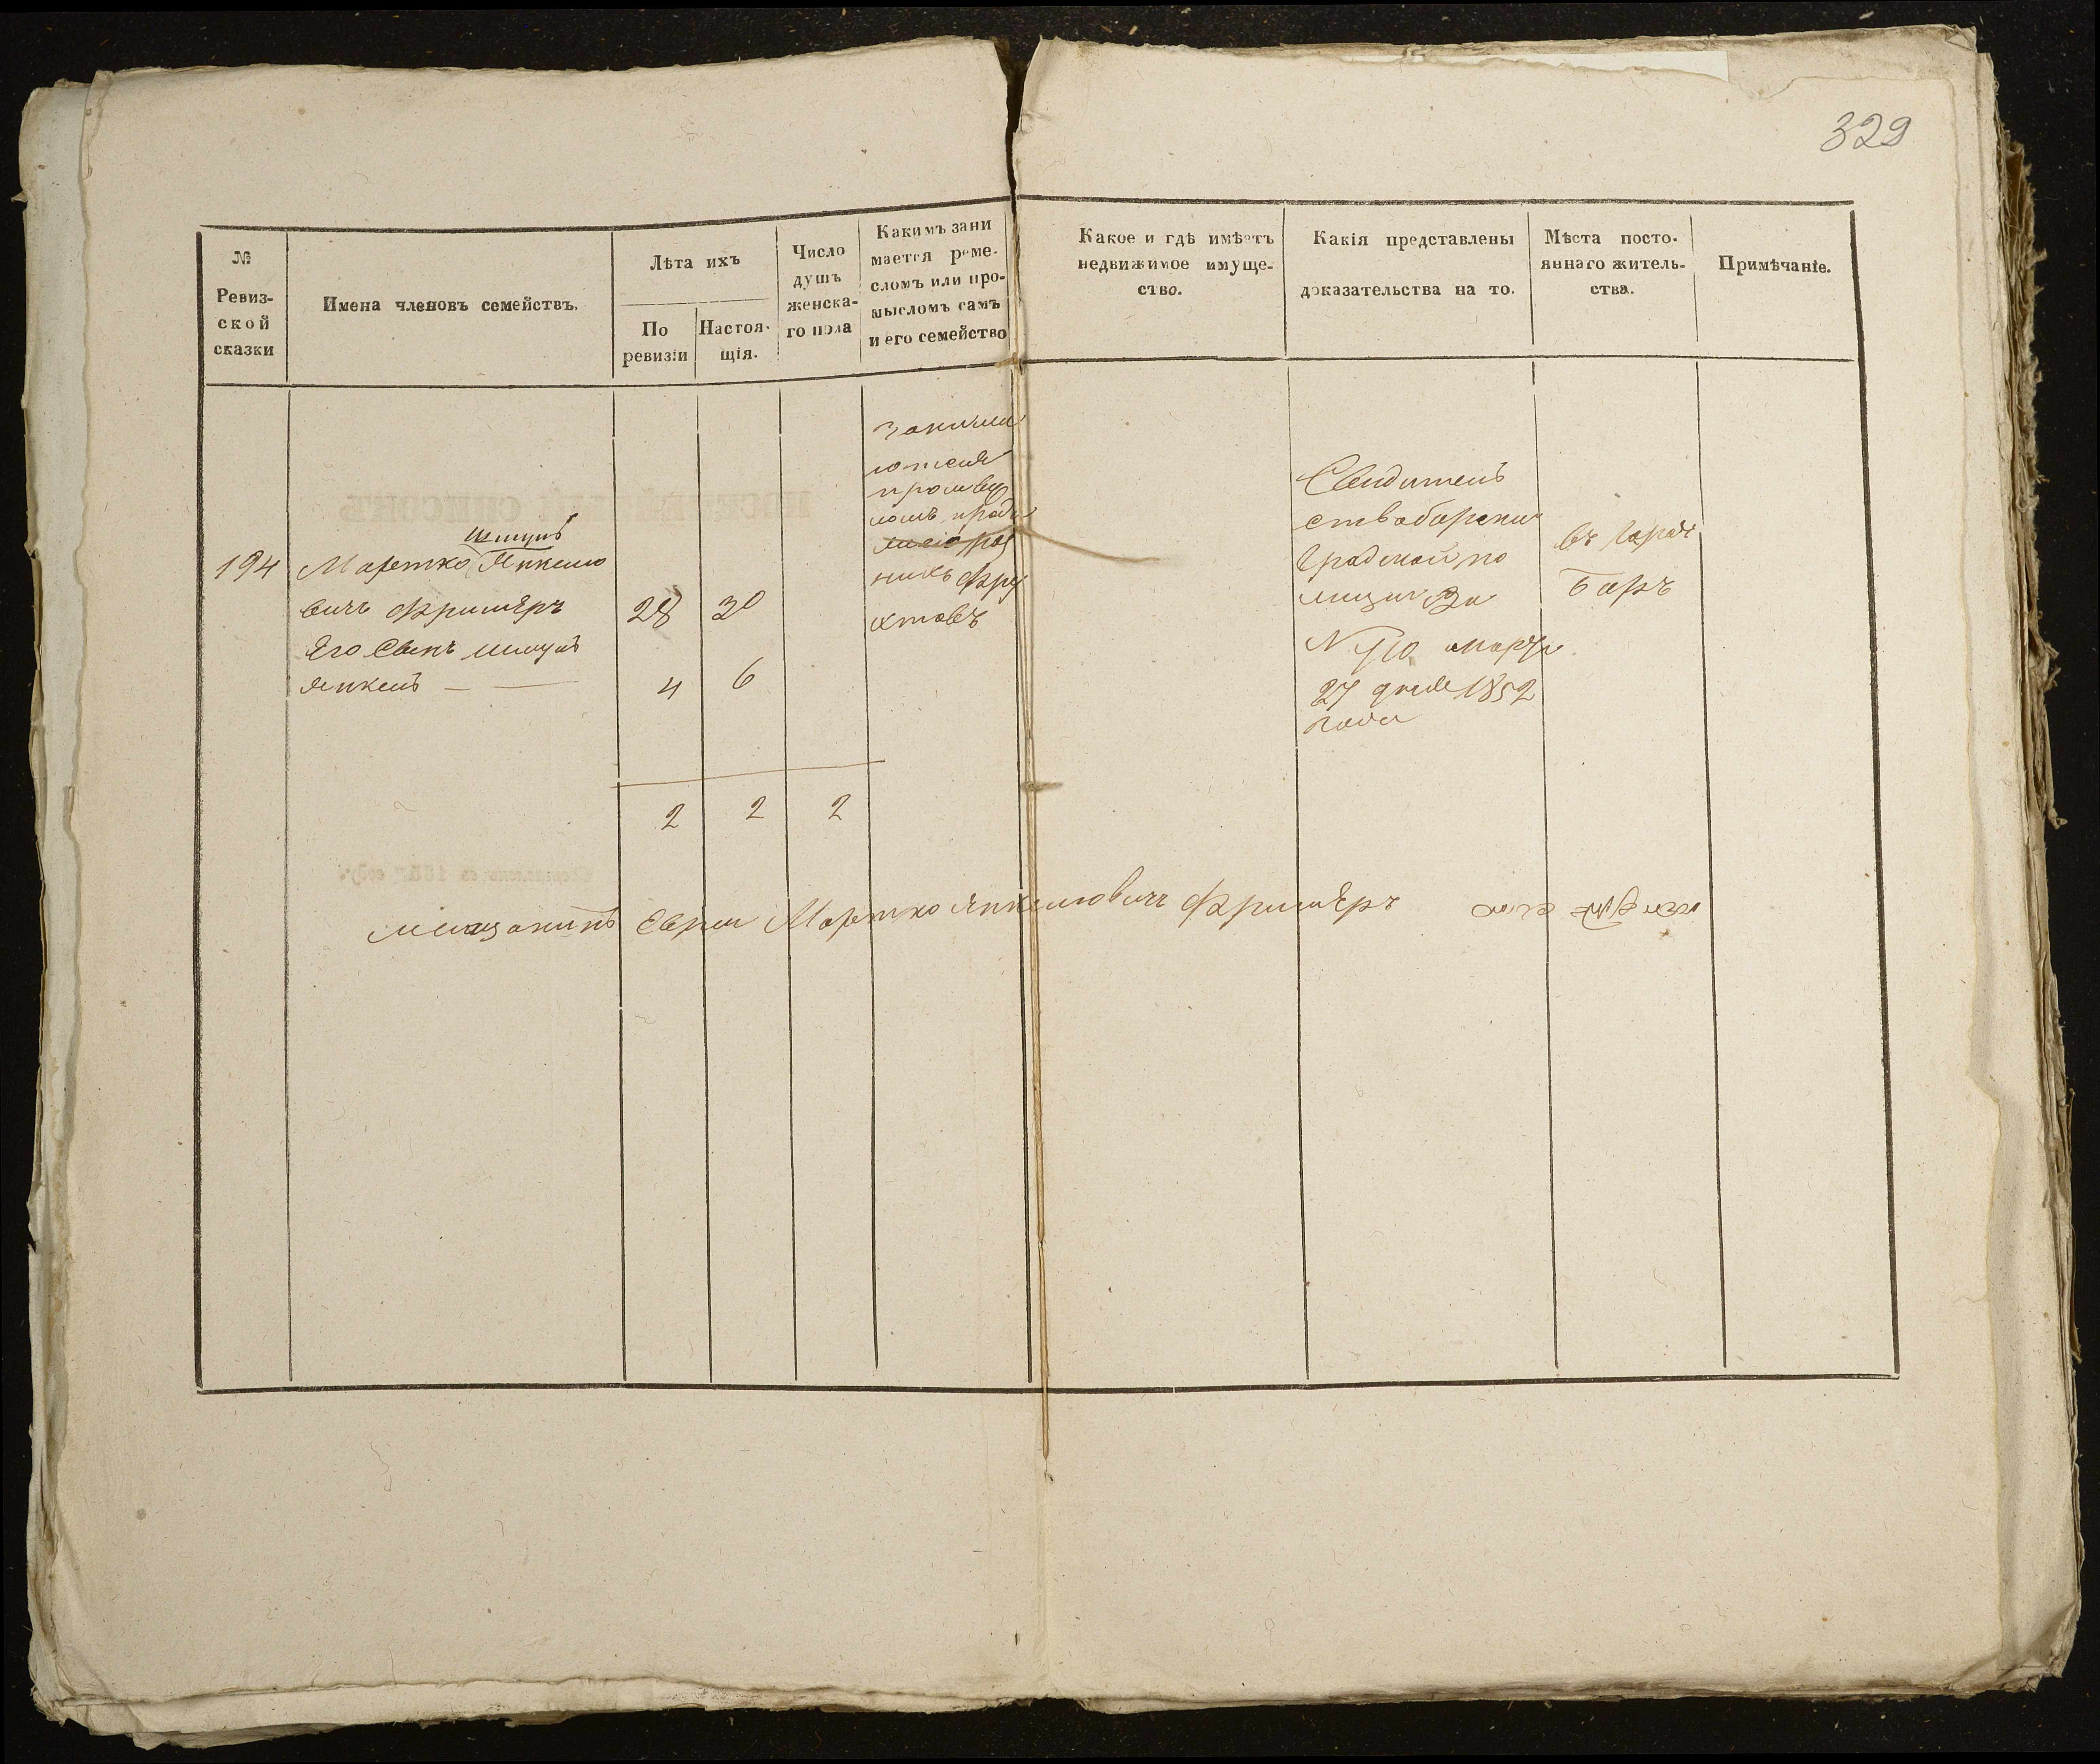 329
№
Ревиз-
ской
сказки
Имена членовъ семействъ.
Лѣта ихъ
По
ревизіи
Настоя-
щія.
Число
душъ
женска-
го пола
Какимъ зани
мается реме-
сломъ или про-
мысломъ самъ
и его семейство
Какое и гдѣ имѣетъ
недвижимое имуще-
ство.
Какія представлены
доказательства на то.
Мѣста посто-
яннаго житель-
ства.
Примѣчаніе.
194
Шмуль
Мортко Янкелю
вичъ Фришеръ
28 30
Его Сынъ Шмуль
Янкель — —
4 6
2 2 2
Занима
ются
промы
ломъ прода
фру
ктовъ
Свидитель
ство барски
Градской по
лиции За
N 710 марта
27 дня 1852
года
въ городе
Баръ
мещанинъ Евреи Мортко Янкелювичъ Фришеръ